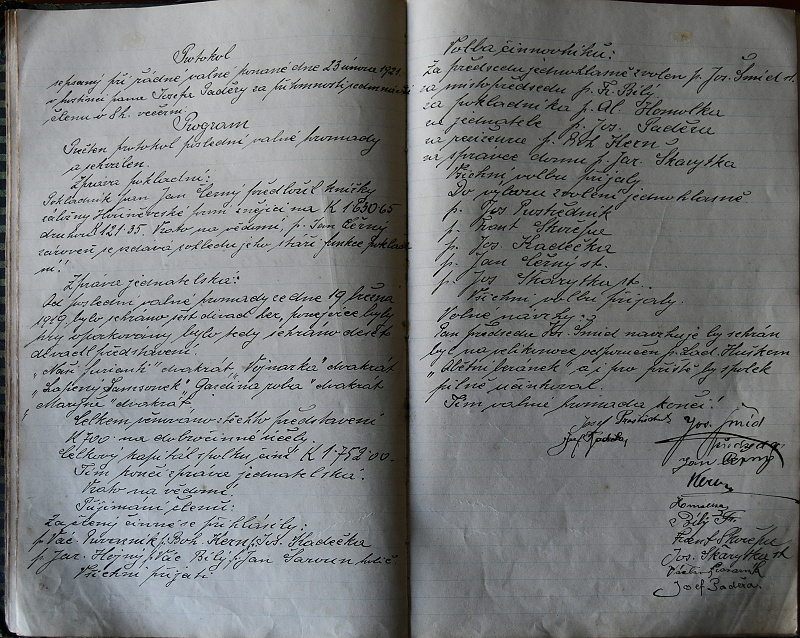 Protokol
sepsaný při řádné valné konané dne 23 února 1921
v hostinci pana Josefa Paděry za přítomnosti
členů o 8 h. večerní.
Program
Přečten protokol poslední valné hromady
a schválen.
Zpráva pokladní:
Pokladník pan Jan Černý předložil knížky
záložny Hounovské první znějící na K 1630 65
druhou K 121.35 Vzato na vědomí, p. Jan Černý
zároveň se vzdává vzhledu jeho stáří funkce poklad
ní!
Zpráva jednatelská:
Od poslední valné hromady ze dne 19 března
1919, bylo sehráno šest divadel her, ponejvíce byly
hry opakovány bylo tedy sehráno deset
divadel představení.
"Naši furianti" dvakrát, "Vojnarka" dvakrát
"Lapený Samsonek" "Gazdina roba" dvakrát
"Maryša" dvakrát.
Celkem věnováno z těchto představení
K 700 na dobročinné účely.
Celkový kapitál spolku činí K 1752 00.
Tím končí zpráva jednatelská.
Vzato na vědomí
Přijímání členů:
Za členy činné se přihlásili:
p. Vác. p. Boh. Kern, p. Jos. Kadečka
p. Jar. Hejný p. Vác Bílý p. Jan
Všichni přijati.
Volba činovníků:
Za předsedu jednohlasně zvolen p. Jos. Šmíd st.
za místopředsedu p. Fr. Bílý
za pokladníka p. Al. Homolka
na jednatele p. Jos. Paděra
na režiséra p. Boh Kern
na správce domu p. Jar. Skarytka
Všichni volbu přijaly
Do výboru zvoleni jednohlasně
p. Jos Prostředník
p. Frant Skořepa
p. Jos. Kadečka
p. Jan Černý st.
p. Jos Skarytka st.
Všichni volbu přijaly.
Volné návrhy:
Pan předseda Jos. Šmíd navrhuje by sehrán
byl na velikonoce odporučen p. Lad. Huškem
"Obětní beránek" a i pro příště by spolek
pilně účinkoval.
Tím valná hromada končí!
Josef Prostředník
Jos. Šmíd
Josef Kadečka
předseda
Jan Černý
Kern
Homolka
Bílý Fr.
Frant Skořepa
Jos. Skarytka st
Josef Paděra.